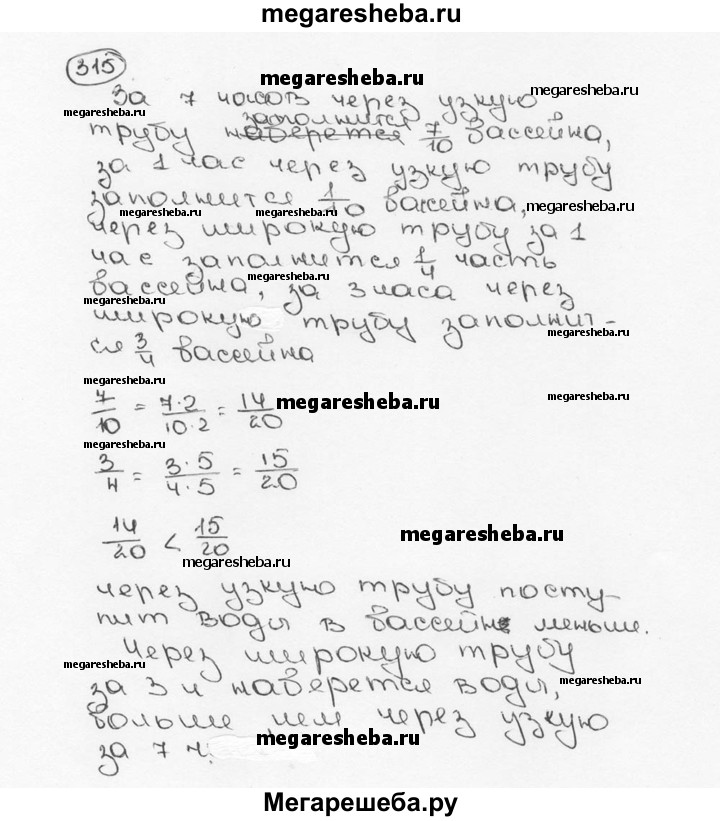 megaresheba.ru
315
megaresheba.ru
megaresheba.ru
За 7 часов через узкую
megaresheba.ru
заполнится
трубу наберется 7/10 бассейна,
за 1 час через узкую трубу
заполнится 1/10 бассейна,
megaresheba.ru
megaresheba.ru
megaresheba.ru
через широкую трубу за 1
час заполнится 1/4 часть
megaresheba.ru
бассейна, за 3 часа через
megaresheba.ru
широкую трубу заполнит-
megaresheba.ru
ся 3/4 бассейна
megaresheba.ru
7/10 = 7·2/10·2 = 14/20
megaresheba.ru
megaresheba.ru
3/4 = 3·5/4·5 = 15/20
14/20 < 15/20
megaresheba.ru
megaresheba.ru
через узкую трубу посту-
пит воды в бассейн меньше.
Через широкую трубу
megaresheba.ru
за 3 ч наберется воды,
megaresheba.ru
больше чем через узкую
megaresheba.ru
за 7 ч.
Мегарешеба.ру